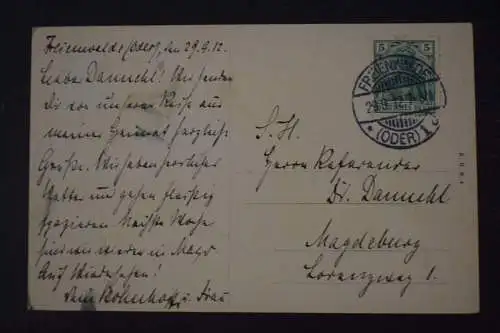 Freienwalde/Oder, den 29.9.12.
Lieber Dannehl! Wir senden
Dir von unserer Reise aus
meiner Heimat herzliche
Grüße. Wir haben herrliches
Wetter und gehen fleißig
spazieren. Nächste Woche
sind wir wieder in Magd.
Auf Wiedersehen!
Dein u. Frau
5 5
FREIENWALDE
29.9.12
* (ODER) 1 c
S. H.
Herrn Referendar
Dr. Dannehl
Magdeburg
Lorenzweg 1.